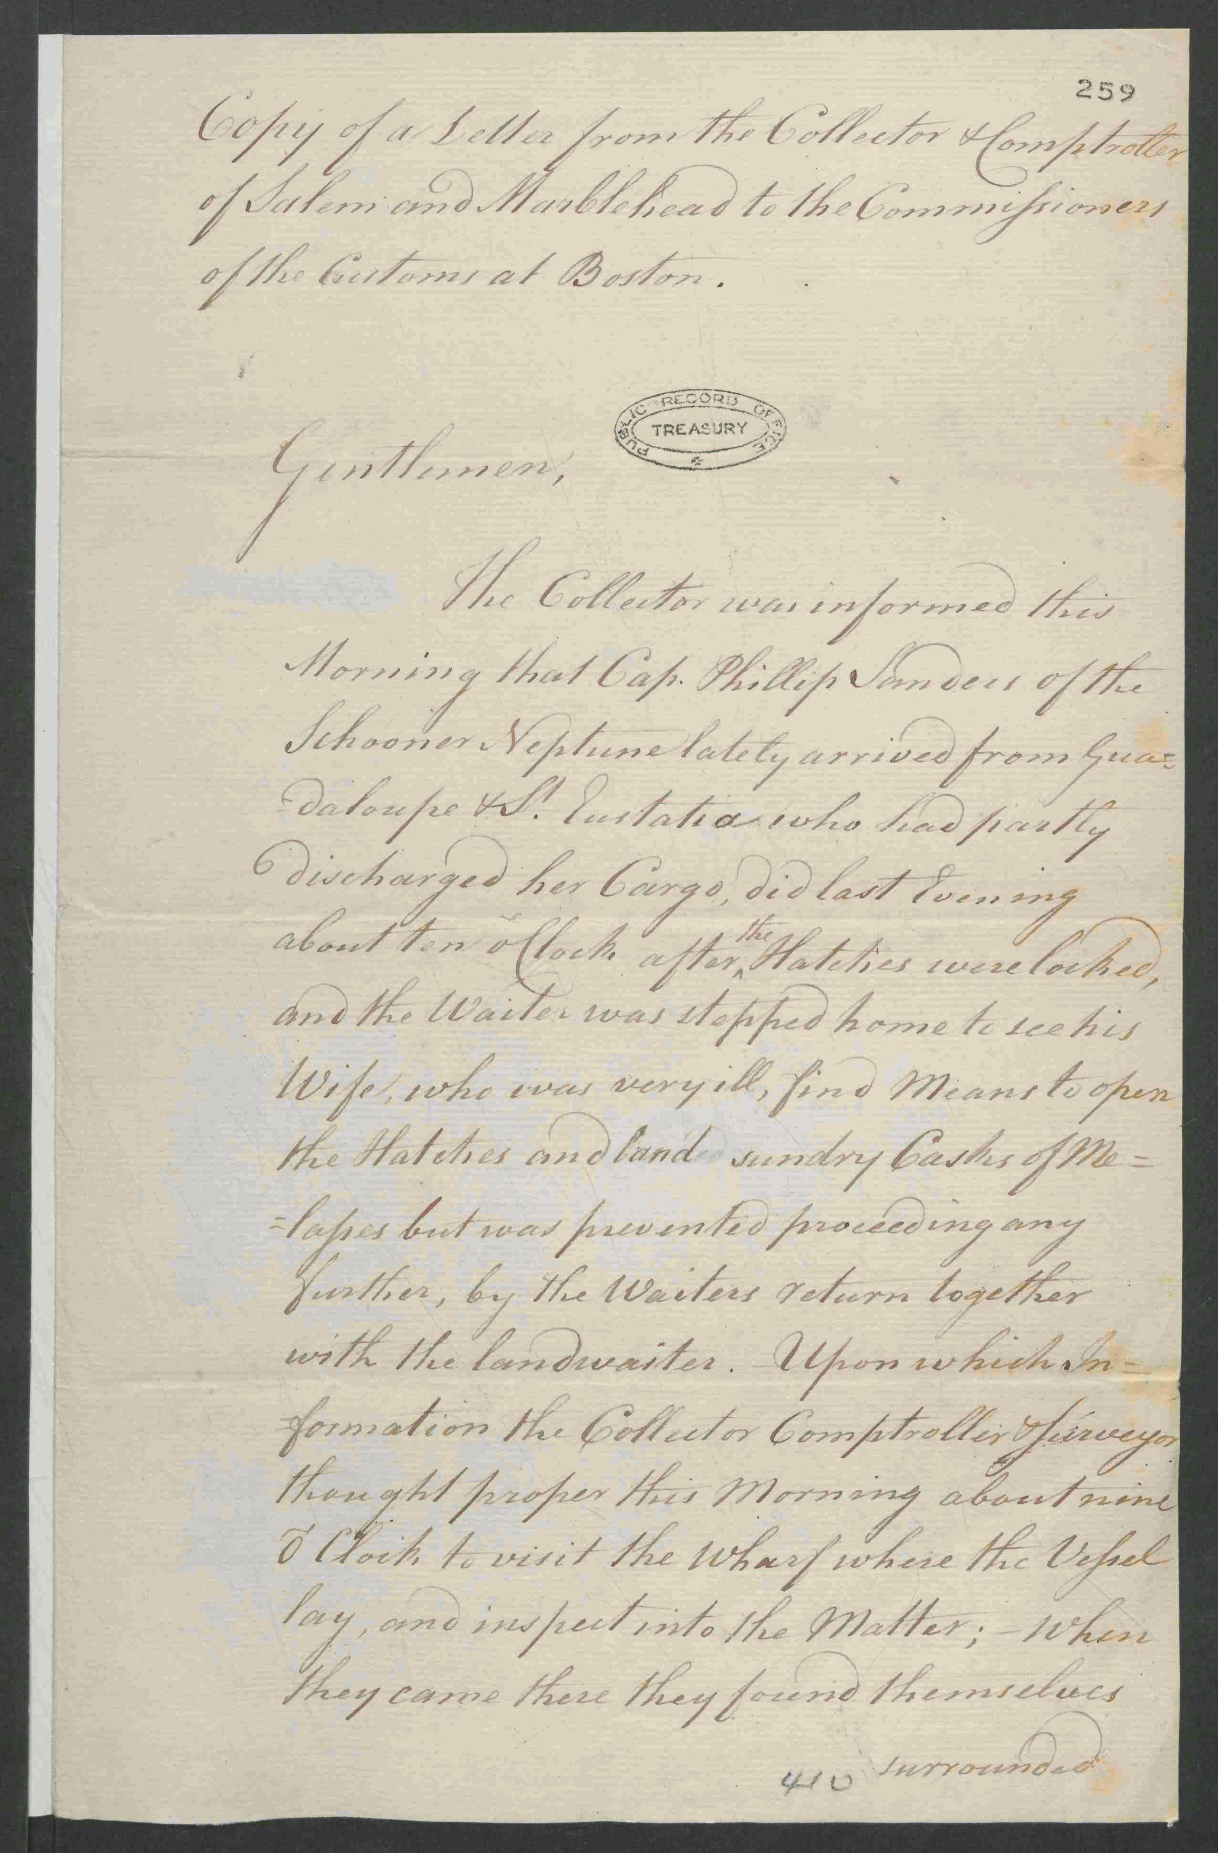 259
Copy of a Letter from the Collector & Comptroller
of Salem and Marblehead to the Commissioners
of the Customs at Boston.
PUBLIC RECORD OFFICE
TREASURY
Gentlemen,
The Collector was informed this
Morning that Cap. Phillip Sanders of the
Schooner Neptune lately arrived from Gua=
=daloupe & St. Eustatia who had partly
discharged her Cargo, did last Evening
about ten o'Clock after the Hatches were locked,
and the Waiter was stepped home to see his
Wife, who was very ill, find Means to open
the Hatches and land sundry Casks of Me=
=lasses but was prevented proceeding any
further, by the Waiters return together
with the landwaiter. Upon which In=
formation the Collector Comptroller & Surveyor
thought proper this Morning about nine
o Clock to visit the Wharf where the Vessel
lay, and inspect into the Matter; – When
they came there they found themselves
surrounded
410